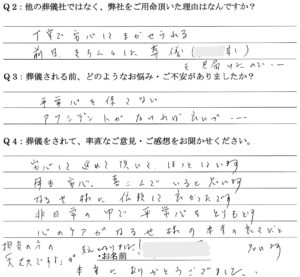 Q2:他の葬儀社ではなく、弊社をご用命頂いた理由はなんですか?
丁寧で安心してまかせられる
前日きちんとした葬儀(
を見届けたので……
Q3:葬儀される前、どのようなお悩み・ご不安がありましたか?
平常心を保てない
アクシデントがなければ良いが……
Q4:葬儀をされて、率直なご意見・ご感想をお聞かせください。
安心して進めて頂いて、ほっとしています
母も安心、喜こんでいると思います
なるせ様に依頼して良かったです
非日常の中で平常心をとりもどす
心のケアがなるせ様の本来の姿だと
担当の方の
思います
大丈夫ですよ が
お名前
本当にありがとうございました。